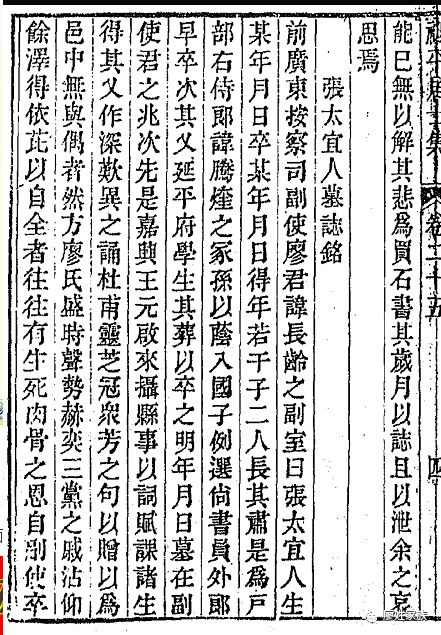 平居士集 卷二十五 四
能已無以解其悲爲買石書其歲月以誌且以泄余之哀
思焉
張太宜人墓誌銘
前廣東按察司副使廖君諱長齡之副室曰張太宜人生
某年月日卒某年月日得年若干子二人長其肅是爲戶
部右侍郎諱騰煃之冢孫以蔭入國子例選尙書員外郎
早卒次其乂延平府學生其葬以卒之明年月日墓在副
使君之兆次先是嘉興王元啟來攝縣事以詞賦課諸生
得其乂作深歎異之誦杜甫靈芝冠衆芳之句以贈以爲
邑中無與偶者然方廖氏盛時聲勢赫奕三黨之戚沾仰
餘澤得依芘以自全者往往有生死肉骨之恩自副使卒
廖姓家族